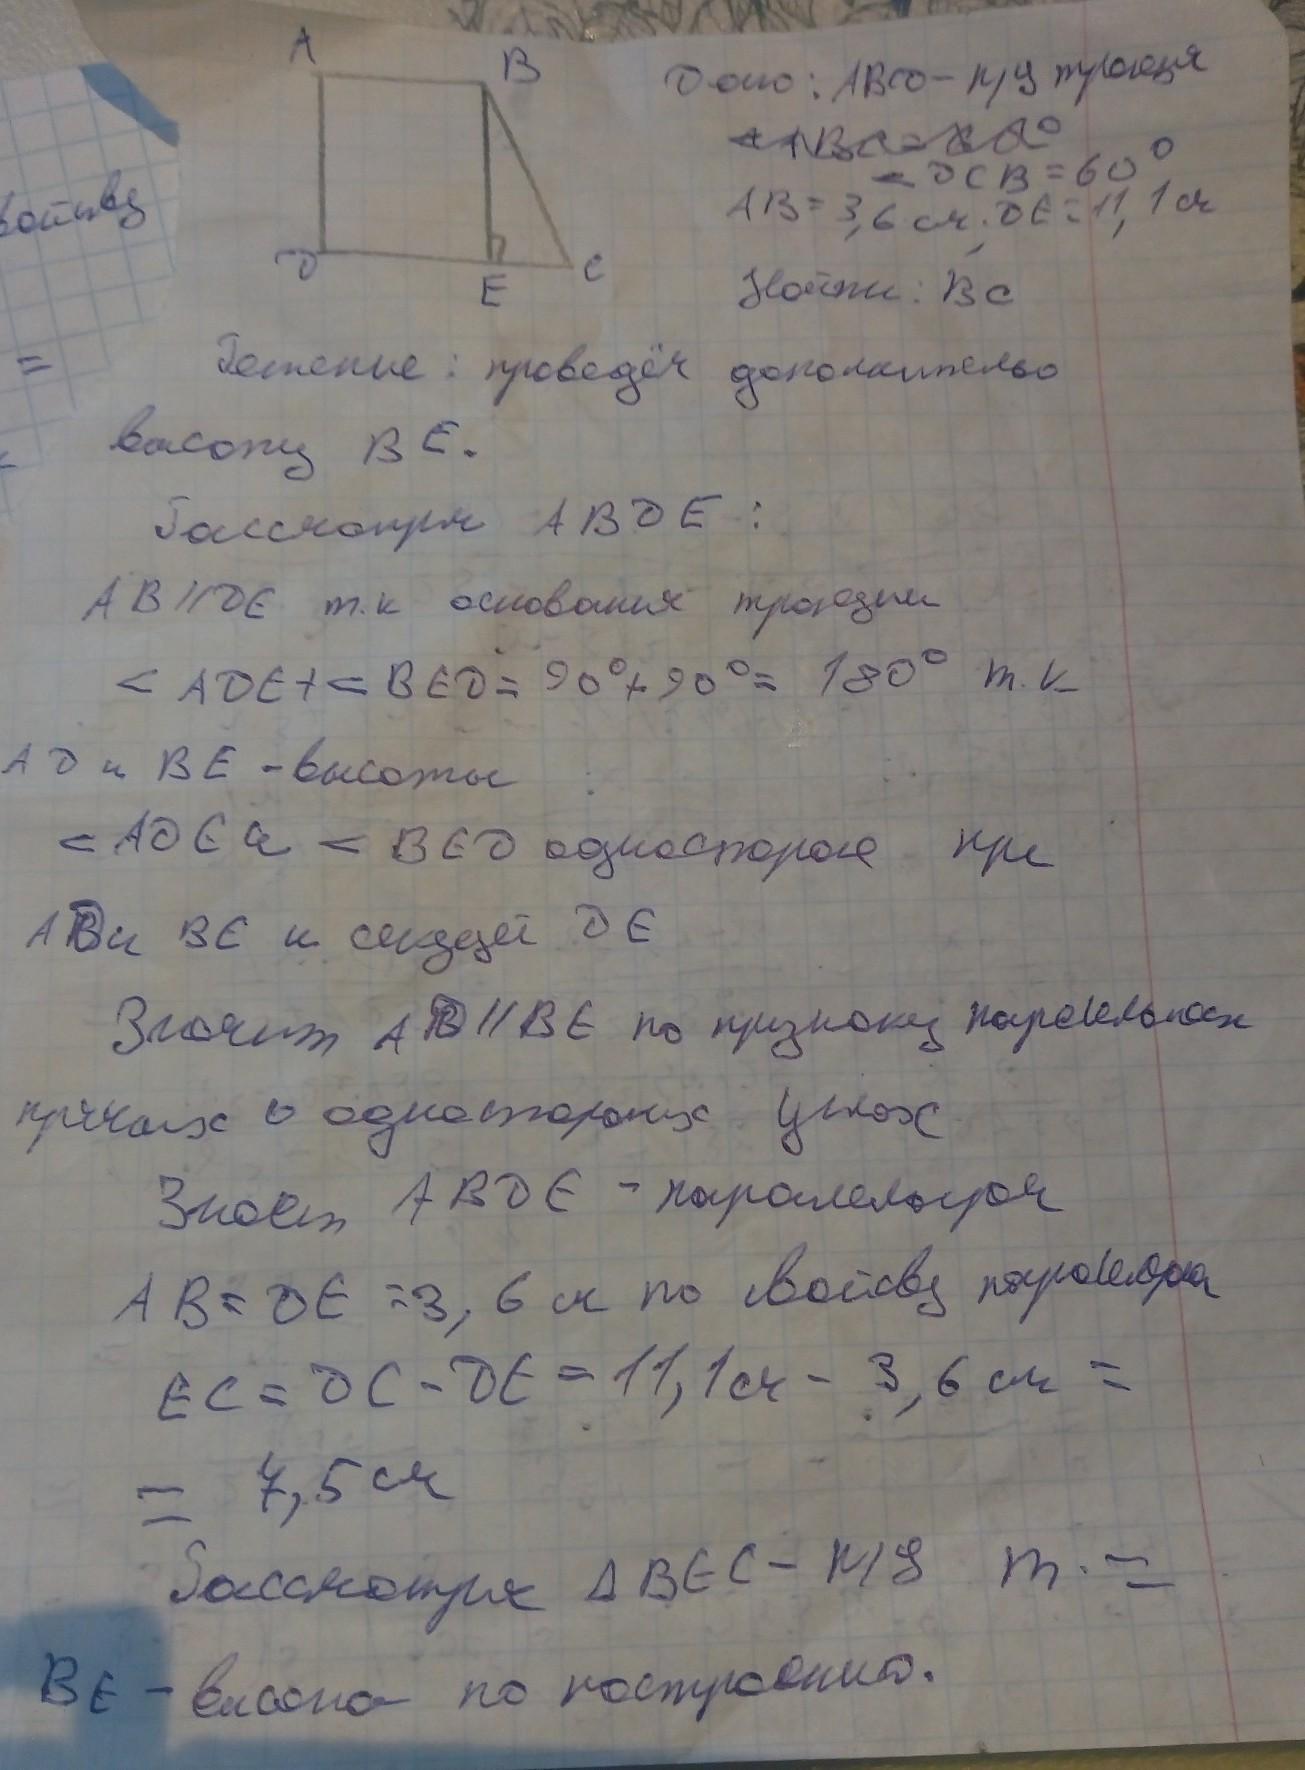 A
B
D
E
C
Дано: ABCD – п/у трапеция
< DCB = 60°
AB = 3,6 см; DE = 11,1 см
Найти: BC
войству
=
Решение: проведём дополнительо
высоту BE.
Рассмотрим ABDE:
AB || DE т.к основания трапеции
< ADE + < BED = 90° + 90° = 180° т.к
AD и BE – высоты
< ADE и < BED односторое при
AD и BE и секущей DE
Значит AD || BE по признаку
прямых о одностороних углах
Значит ABDE – паралелограм
AB = DE = 3,6 см по
EC = DC – DE = 11,1 см – 3,6 см =
= 7,5 см
Рассмотрим ΔBEC – п/у т. =
BE – высота по построению.